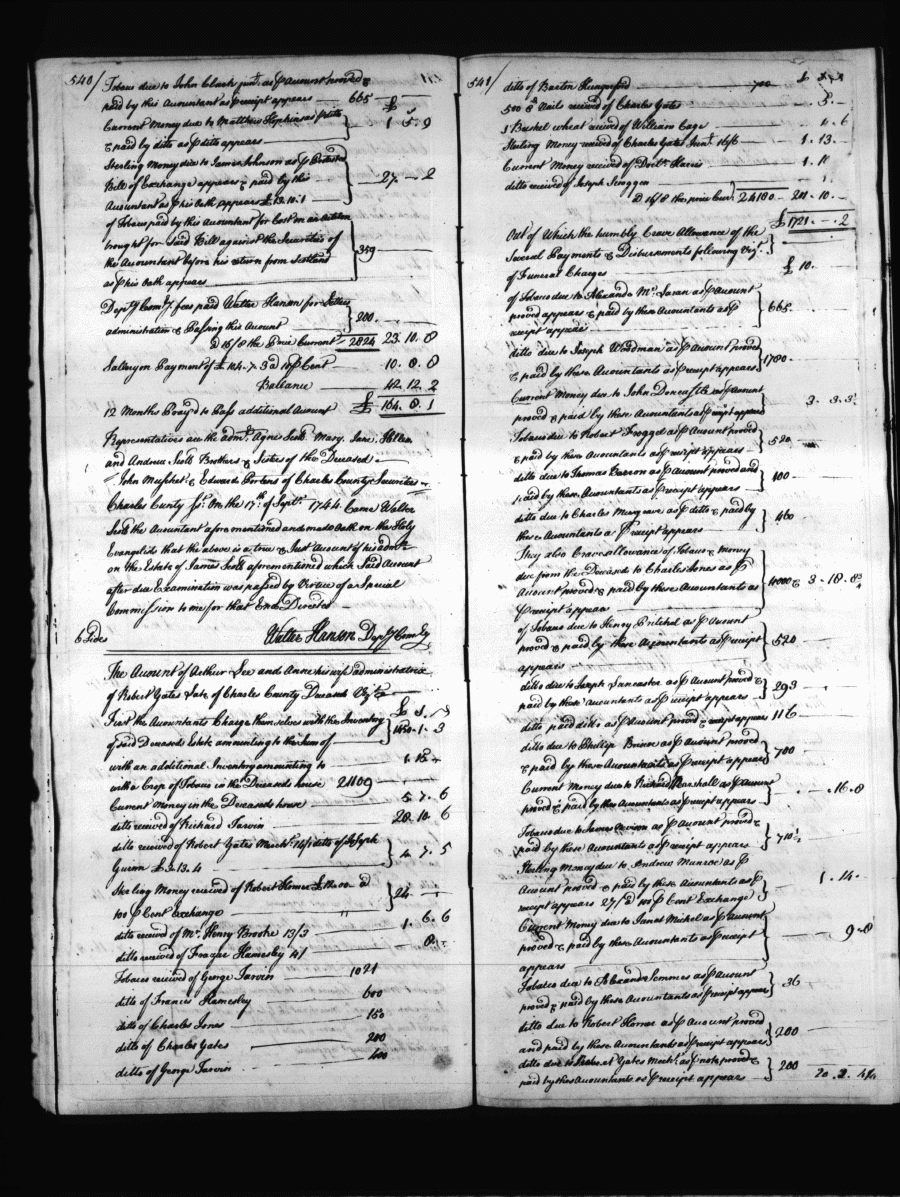 540/ Tobaco due to John Clark junr. as ⅌ Account proved &
paid by this Accountant as ⅌ receipt appears — 665 £
Current Money due to Matthew Hopkins as ⅌ ditto
& paid by ditto as ⅌ ditto appears — } 1 5. 9
Sterling Money due to James Johnson as ⅌ Protested
Bill of Exchange appears & paid by this
Accountant as ⅌ his Oath appears £ 13.10.1 } — 27. — 2
of Tobacco paid by this Accountant for Cost on an Action
brought for said Bill against the Securities of
the Accountant before his return from Scotland
as ⅌ his oath appears } 359
Depty Comry. fees paid Walter Hanson for Letters
administration & Passing this Account — } 200. —
@ 16/8 the Price Current — 2824 23. 10. 8
Sallery on Payment of £ 104. 7. 3 @ 10 ⅌ Cent — 10. 8. 8
Ballance — 42. 12. 2
12 Months Pray'd to Pass additional Account £ 164. 8. 1
Representatives are the admr. Agne Scott Mary, Jane, Hellen
and Andrew Scott Brothers & Sisters of the Deceased —
John Muschet & Edward of Charles County Securities
Charles County Ss. On the 17th of Septr. 1744 Came Walter
Scott the Accountant aforementioned and made Oath on the Holy
Evangelists that the above is a true & Just Account of his admn
on the Estate of James Scott aforementioned which Said Account
after due Examination was passed by Virtue of a Special
Commission to me for that End Directed —
6 Sides Walter Hanson Depty Comry
The Account of Arthur Lee and Anne his wife administratrix
of Robert Gates late of Charles County Deceased Vizt.
£ S. D
First the Accountants Charge themselves with the Inventory
of said Deceaseds Estate amounting to the sum of — } 1450. 1. 3
with an additional Inventory amounting to — 1. 15. —
with a Crop of Tobaco in the Deceaseds house 21109 —
Current Money in the Deceaseds house — 5. 7. 6
ditto received of Richard Tarvin — 28. 10. 6
ditto received of Robert Gates Mercht. 14/1 ditto of Joseph
Guinn £ 3. 13. 4 — } 4. 7. 5
Sterling Money received of Robert Horner £ 12.00. @
100 ⅌ Cent Exchange — } 24. —
ditto received of Mr. Henry Brooke 13/3 — 1. 6. 6
ditto received of Frazer Hamesley 4/ — 8. —
Tobaco received of George Tarvin 1021
ditto of Francis Hamesley — 600
ditto of Charles Jones — 150
ditto of Charles Gates — 200
ditto of George Tarvin — 400
541/ ditto of Barton Hungerford — 700 £ S D
500 8d Nails received of Charles Gates — . 3. —
1 Bushel wheat received of William Cage — 6
Sterling Money received of Charles Gates Junr. 16/6 — 1. 13. —
Current Money received of Doctr. Harris — 1. 10
ditto received of Joseph Scroggen —
@ 16/8 the price Curr. } 24180 — 201. 10. —
£ 1721. — . 2
Out of Which they humbly Crave Allowance of the
Several Payments & Disbursements following Vizt. }
of Funeral Charges £ 10. —
of Tobaco due to Alexander as ⅌ Account
proved appears & paid by these Accountants as ⅌
receipt appears } 665
ditto due to Joseph Woodman as ⅌ Account proved
& paid by these Accountants as ⅌ receipt appears } 1780 —
Current Money due to John as ⅌ Account
proved & paid by these Accountants as ⅌ receipt appears — 3. 3. 3
Tobaco due to Robert Froggot as ⅌ Account proved
& paid by these Accountants as ⅌ receipt appears — } 520
ditto due to Thomas as ⅌ Account proved and
paid by these Accountants as ⅌ receipt appears — } 400 —
ditto due to Charles Musgrave as ⅌ ditto & paid by
these Accountants as ⅌ receipt appears — } 460
They also Crave allowance of Tobaco & money
due from the Deceased to Charles Jones as ⅌
Account proved & paid by these Accountants as
⅌ receipt appears — } 4000 & 3. 18. 8
of Tobaco due to Henry Pritchet as ⅌ Account
proved & paid by these Accountants as ⅌ receipt
appears — } 520
ditto due to Joseph Lancaster as ⅌ Account proved &
paid by these Accountants as ⅌ receipt appears — } 293
ditto paid ditto as ⅌ Account proved & receipt appears 116 —
ditto due to Phillip Briscoe as ⅌ Account proved
& paid by these Accountants as ⅌ receipt appears } 700
Current Money due to Richard Marshall as ⅌ Account
proved & paid by these Accountants as ⅌ receipt appears } — . 16. 8
Tobaco due to James as ⅌ Account proved &
paid by these Accountants as ⅌ receipt appears — } 710
Sterling Money due to Andrew Munroe as ⅌
Account proved & paid by these Accountants as ⅌
receipt appears 27/ @ 100 ⅌ Cent Exchange } 1. 14. —
Current Money due to Janet Michel as ⅌ Account
proved & paid by these Accountants as ⅌ receipt
appears — } 9. 8
Tobaco due to Alexander Semmes as ⅌ Account
proved & paid by these Accountants as ⅌ receipt appears } 36
ditto due to Robert Horner as ⅌ Account proved
and paid by these Accountants as ⅌ receipt appears } 200 —
ditto due to Robert Gates Mercht. as ⅌ note proved &
paid by these Accountants as ⅌ receipt appears — } 200
20. 2.